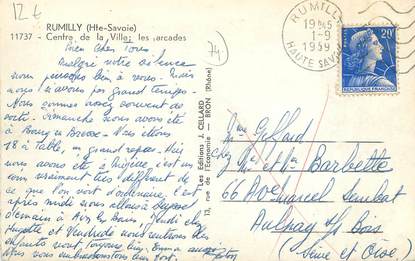 12 €
RUMILLY (Hte-Savoie)
11737 - Centre de la Ville: les arcades
74
RUMILLY
19 45
1-9
1959
HAUTE SAVOIE
20F
POSTES
REPUBLIQUE FRANÇAISE
Bien Chers tous
Malgré votre silence
nous pensons bien à vous. Mais
nous n'avons pas grand temps.
Nous sommes assez souvent de
sortie. Dimanche nous avons été
à Bourg en Bresse. Nous étions
18 à table, un grand repas. Hier
nous avons été à Megève, c'est un
coin vraiment très différent de
ce que l'on voit d'ordinaire. Cet
après midi nous allons à
demain à Aix les Bains. Jeudi chez
Huguette et Vendredi nous rentrons. Les
enfants vont toujours bien.
Nous vous embrassons bien fort.
Les Editions J. CELLARD
13, rue de l'Economie - BRON (Rhône)
Mme Gaffard
chez Mr et Mme Barbette
66 Av. Marcel Sembat
Aulnay s/ Bois
(Seine et Oise)